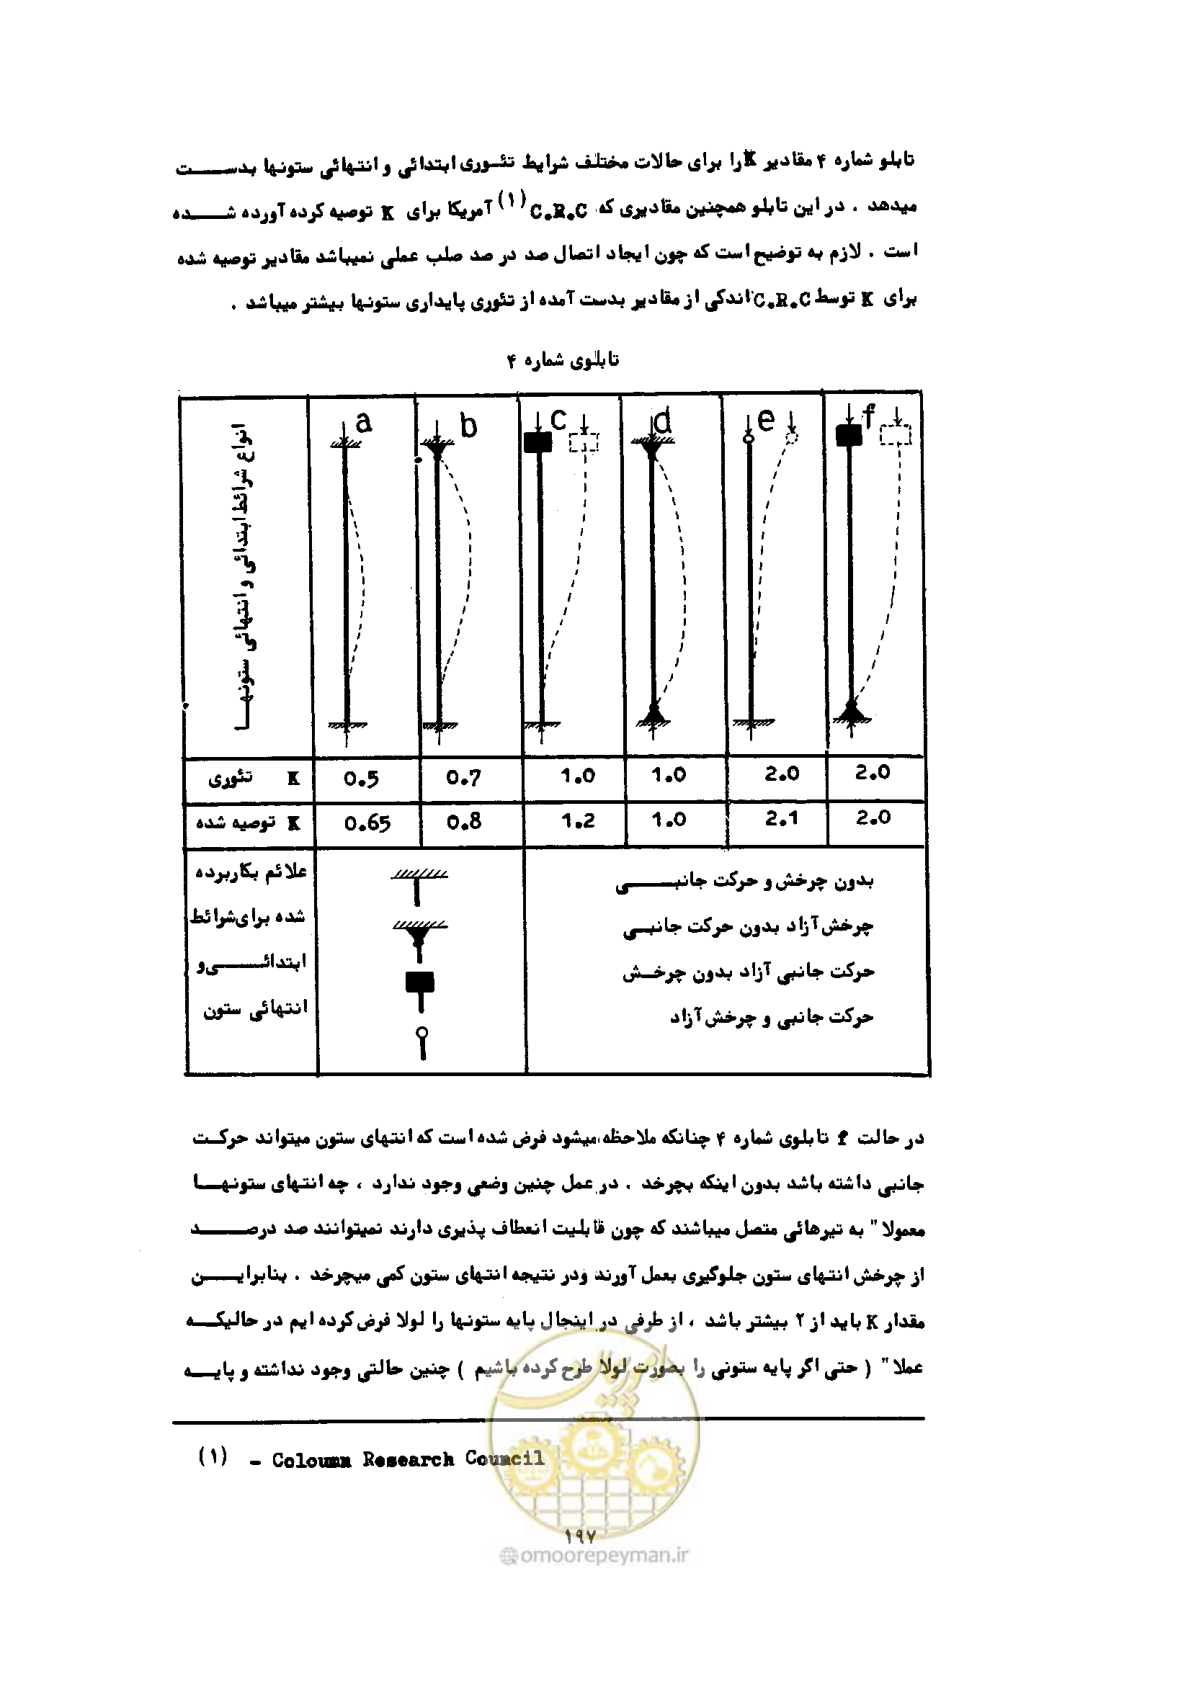 تابلو شماره ۴ مقادیر K را برای حالات مختلف شرایط تئوری ابتدائی و انتهائی ستونها بدست
میدهد . در این تابلو همچنین مقادیری که C.R.C (۱) آمریکا برای K توصیه کرده آورده شده
است . لازم به توضیح است که چون ایجاد اتصال صد در صد صلب عملی نمیباشد مقادیر توصیه شده
برای K توسط C.R.C اندکی از مقادیر بدست آمده از تئوری پایداری ستونها بیشتر میباشد .
تابلوی شماره ۴
انواع شرائط ابتدائی و انتهائی ستونها
a b c d e f
K تئوری 0.5 0.7 1.0 1.0 2.0 2.0
K توصیه شده 0.65 0.8 1.2 1.0 2.1 2.0
علائم بکاربرده
شده برای شرائط
ابتدائی و
انتهائی ستون
بدون چرخش و حرکت جانبی
چرخش آزاد بدون حرکت جانبی
حرکت جانبی آزاد بدون چرخش
حرکت جانبی و چرخش آزاد
در حالت f تابلوی شماره ۴ چنانکه ملاحظه میشود فرض شده است که انتهای ستون میتواند حرکت
جانبی داشته باشد بدون اینکه بچرخد . در عمل چنین وضعی وجود ندارد ، چه انتهای ستونها
معمولا" به تیرهائی متصل میباشند که چون قابلیت انعطاف پذیری دارند نمیتوانند صد درصد
از چرخش انتهای ستون جلوگیری بعمل آورند ودر نتیجه انتهای ستون کمی میچرخد . بنابراین
مقدار K باید از ۲ بیشتر باشد ، از طرفی در اینجال پایه ستونها را لولا فرض کرده ایم در حالیکه
عملا" ( حتی اگر پایه ستونی را بصورت لولا طرح کرده باشیم ) چنین حالتی وجود نداشته و پایه
(۱) - Coloumn Research Council
امور پیمان
۱۹۷
@omoorepeyman.ir